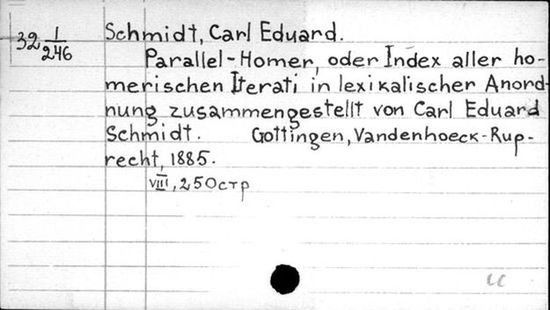 32 1/246
Schmidt, Carl Eduard.
Parallel-Homer, oder Index aller ho-
merischen Iterati in lexikalischer Anord-
nung zusammengestellt von Carl Eduard
Schmidt. Gottingen, Vandenhoeck-Rup-
recht, 1885.
VIII, 250 стр